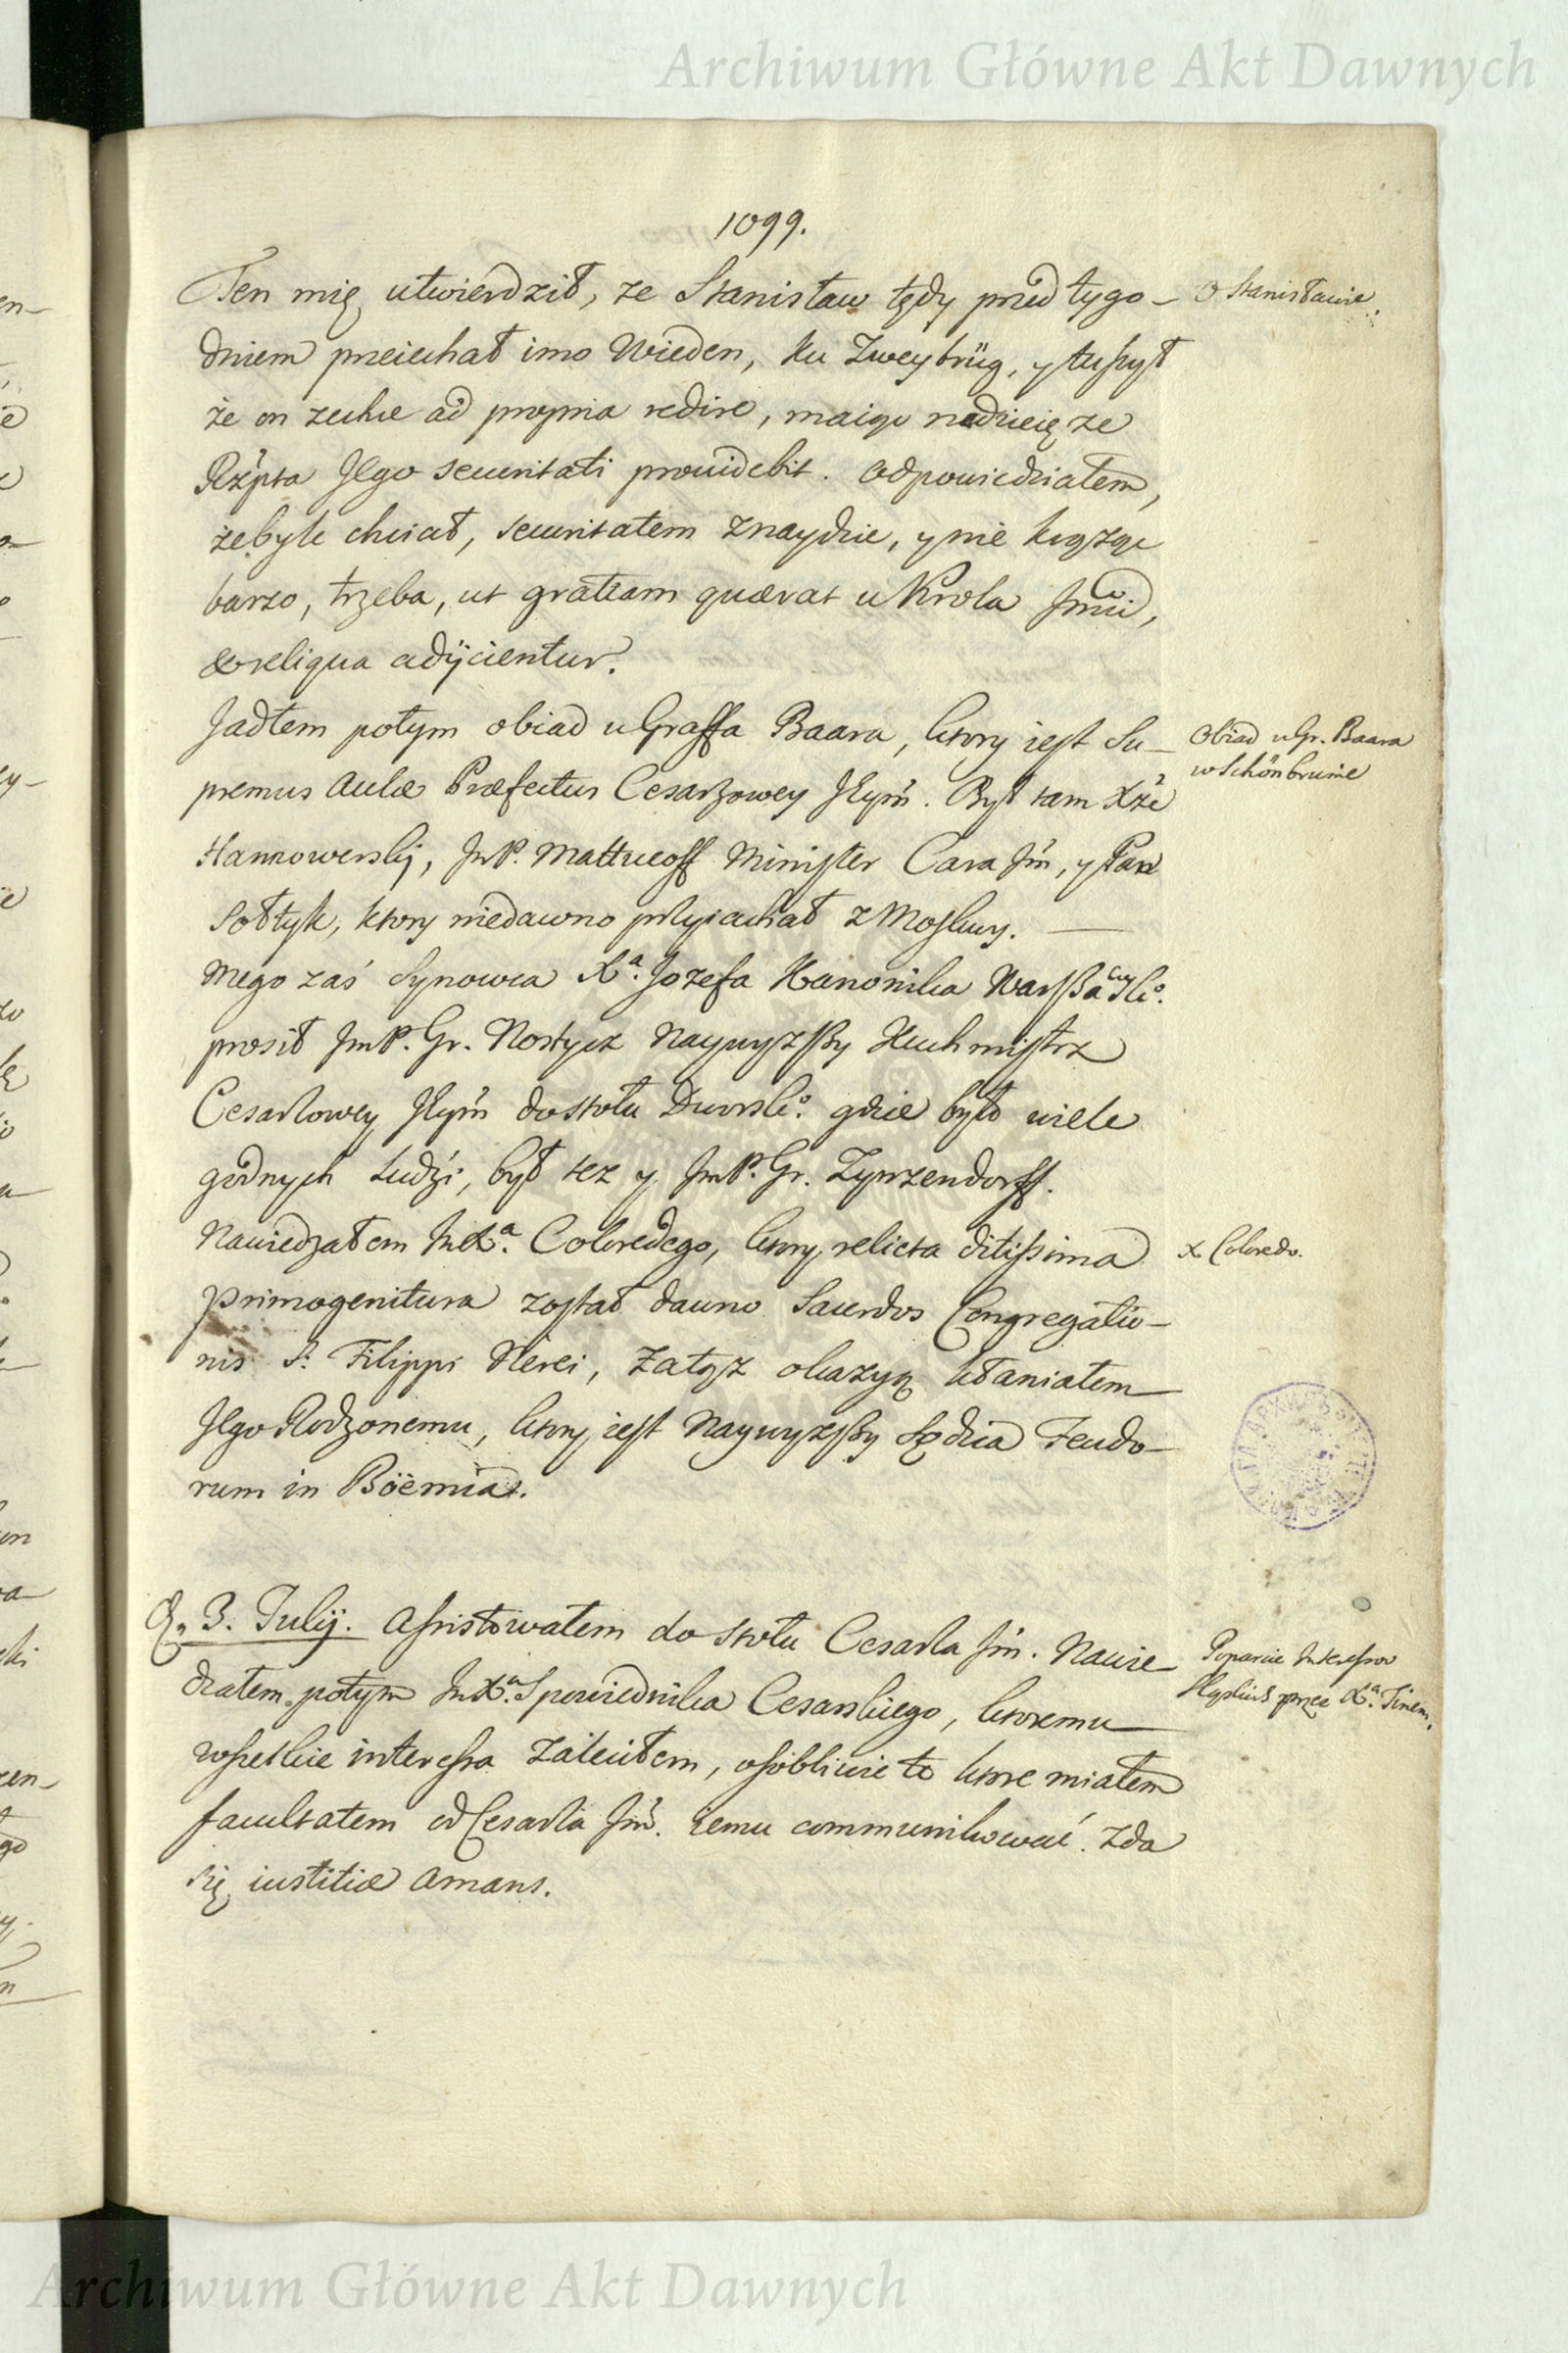 Archiwum Główne Akt Dawnych
1099.
Ten mię utwierdził, ze Stanisław tędy przed tygo-
O Stanisławie.
dniem przeiechał imo Wieden, ku Zweybrüg, y tuszył
że on zechce ad propria redire, maiąc nadzieię ze
Rzpta Jego securitati prouidebit. Odpowiedziałem,
żebyle chciał, securitatem znaydzie, y nie krążąc
barzo, trzeba, ut gratiam quærat u Krola Jmći,
& reliqua adijcientur.
Jadłem potym obiad u Graffa Baara, ktory iest Su-
Obiad u Gr. Baara
w Schönbrunie
premus Aulæ Præfectus Cesarzowey Jeym̃. Był tam Xżę
Hannowerskj, JmP. Mattueoff Minister Cara Jm̃, y Pan
Sołtyk, ktory niedawno przyiachał z Moskwy.
Mego zaś Synowca Xa. Jozefa Kanonika Warszawskgo.
prosił JmP. Gr. Nostycz Naywyzszy Kuchmistrz
Cesarzowey Jeym̃ do stołu Dworskgo. gdzie było wiele
godnych Ludzi, był tez y JmP. Gr. Zynzendorff.
Nawiedzałem JmXa. Coloredego, ktory relicta ditissima
X Coloredo.
Primogenitura został dawno Sacerdos Congregatio-
nis S. Filippi Nerei, Zatąz okazyą kłaniałem
Jego Rodzonemu, ktory iest Naywyzszy Sędzia Feudo-
rum in Böemia.
D. 3. Julij. Assistowałem do stołu Cesarza Jm̃. Nawie-
Poparcie Interessow
działem potym JmXa. Spowiednika Cesarskiego, ktoremu
przez Xa.
wszelkie interessa zaleciłem, osobliwie te ktore miałem
facultatem od Cesarza Jm̃. iemu communikować. Zda
się iustitiæ amans.
Archiwum Główne Akt Dawnych